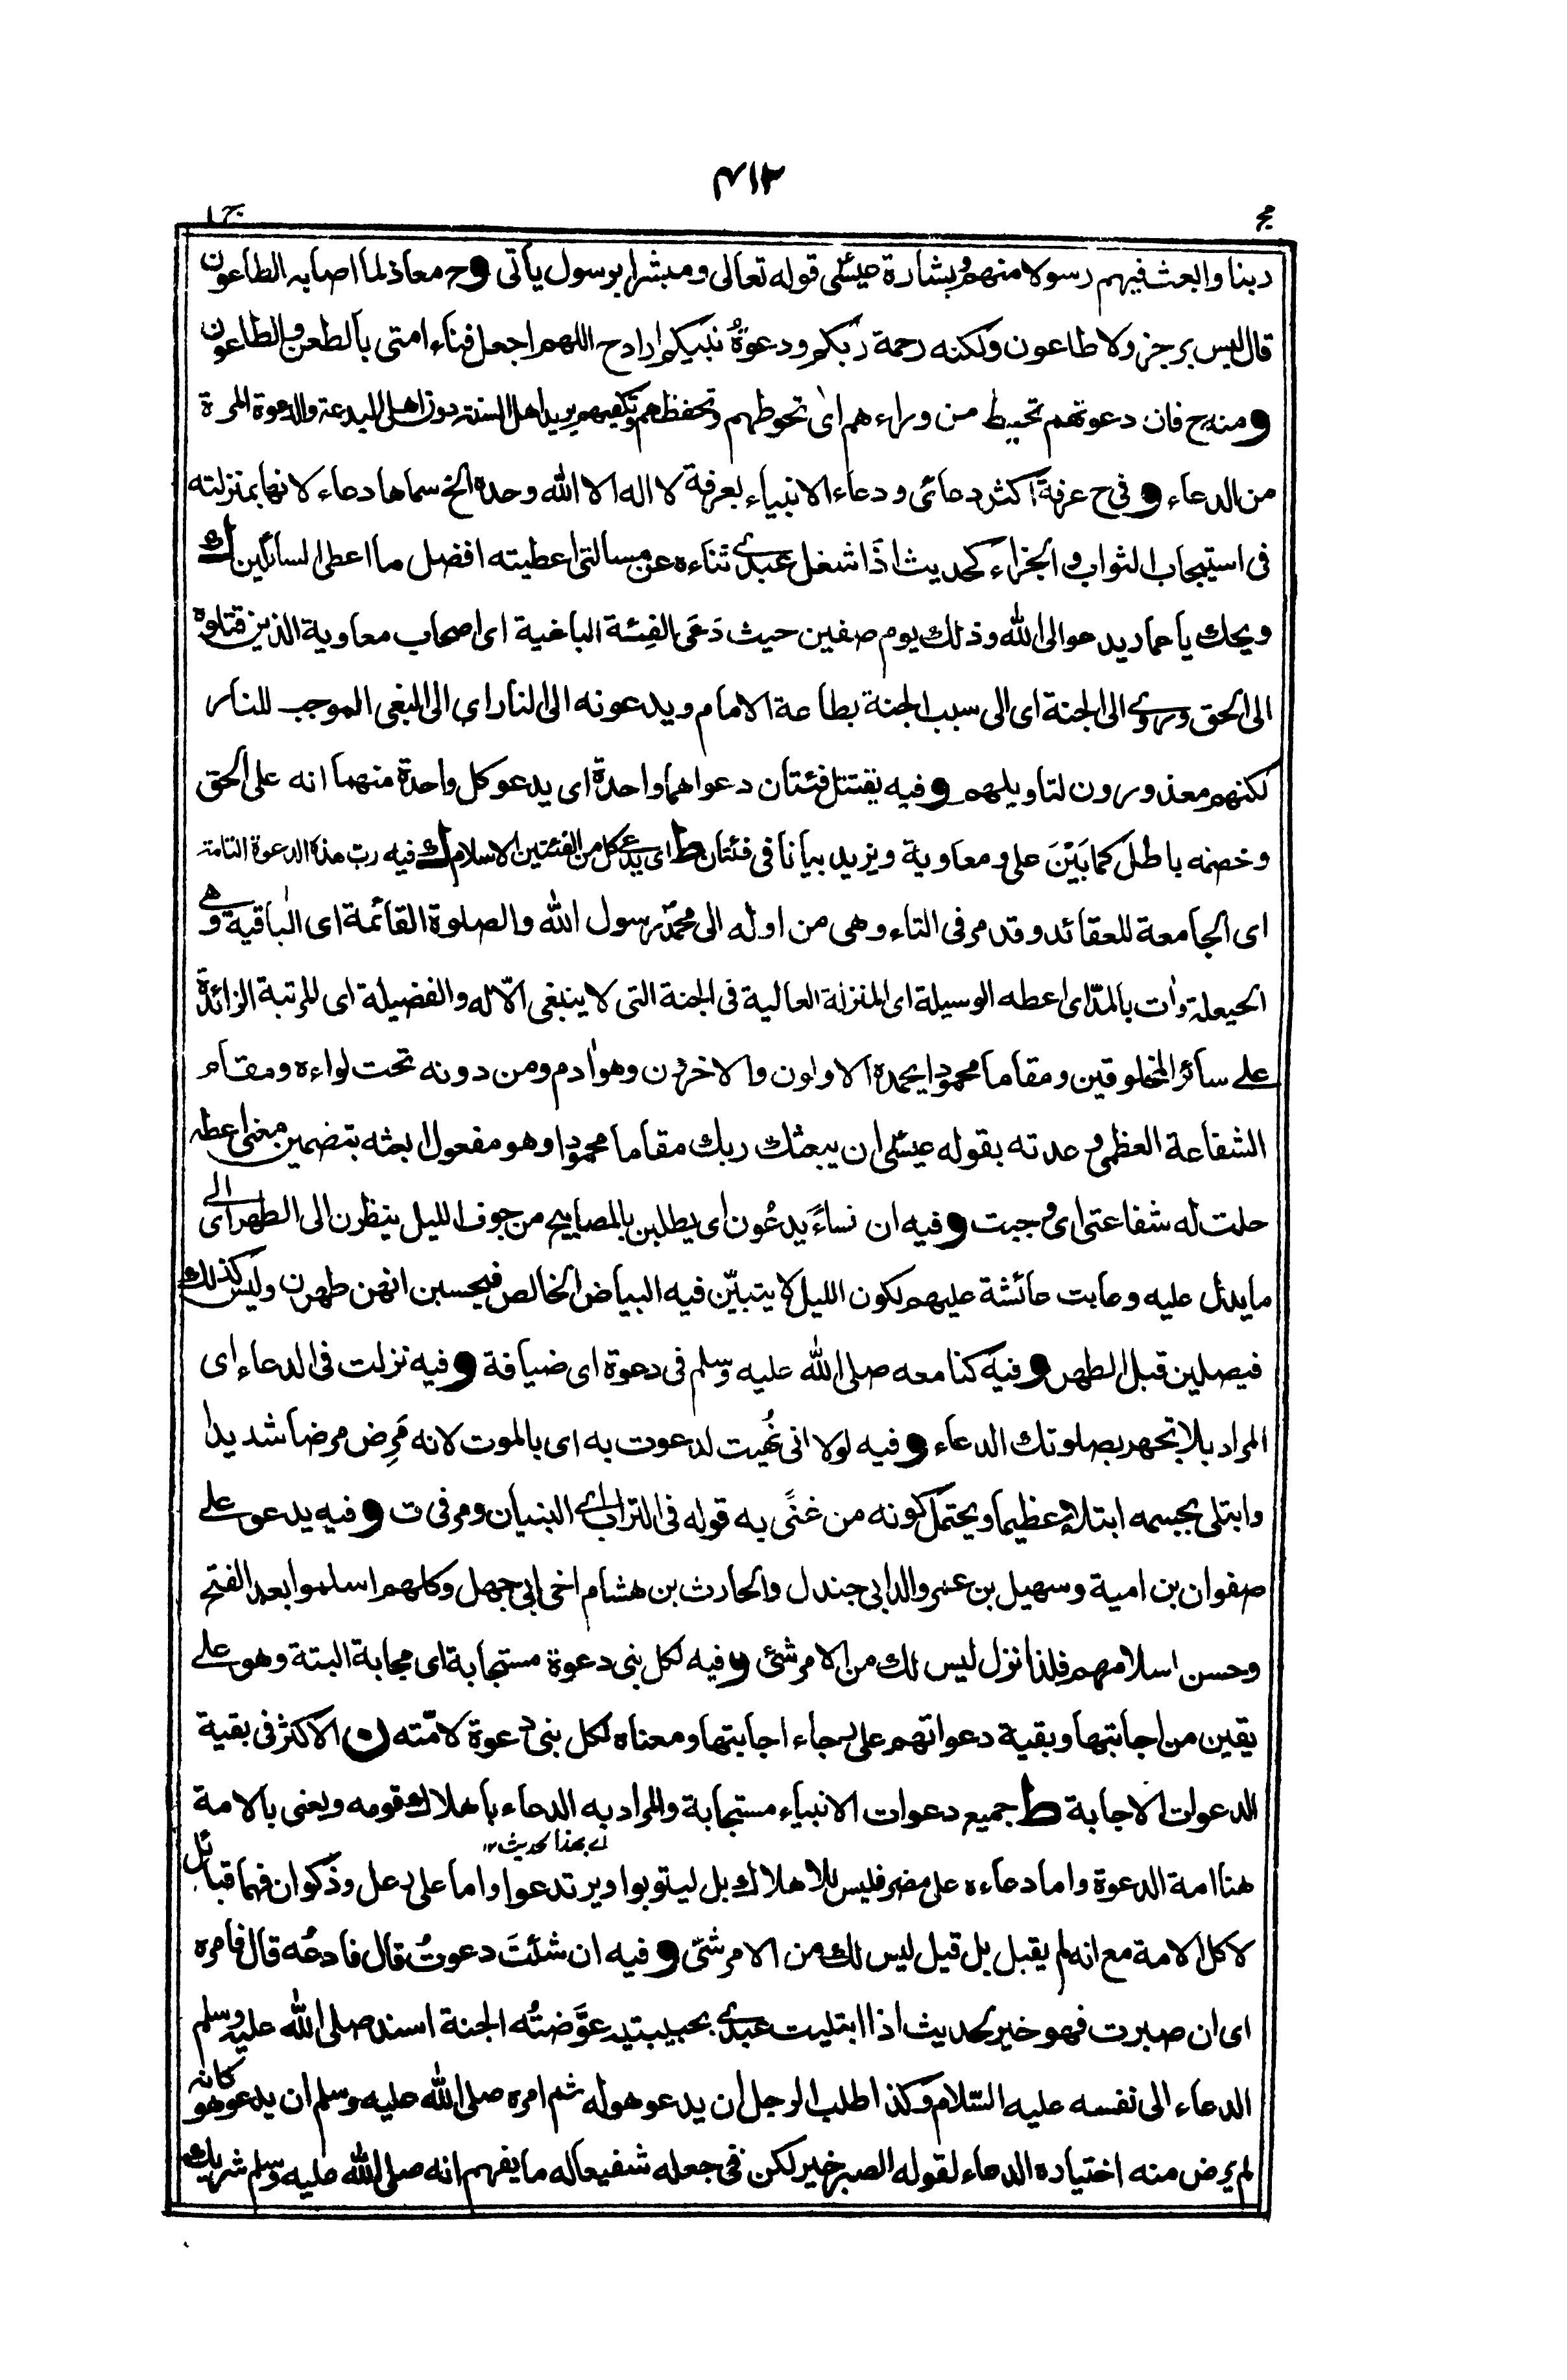 ۴۱۲
مج
ج ۱
ربنا وابعث فيهم رسولا منهم وبشارة عيسى قوله تعالى ومبشرا برسول ياتى و ح معاذ لما اصابه الطاعون
قال ليس برجز ولا طاعون ولكنه رحمة ربكم ودعوةُ نبيكم اراد ح اللهم اجعل فناء امتى بالطعن والطاعون
و منه ح فان دعوتهم تحيط من وراءهم اى تحوطهم وتحفظهم وتكفيهم يريد اهل السنة دون اهل البدعة والدعوة المرة
من الدعاء و فى ح عرفة اكثر دعائى ودعاء الانبياء بعرفة لا اله الا الله وحده الخ سماها دعاء لانها بمنزلته
فى استيجاب الثواب والجزاء كحديث اذا شغل عبدى ثناءه عن مسالتى اعطيته افضل ما اعطى السائلين ك
ويحك يا عمار يدعو الى الله وذلك يوم صفين حيث دَعَى الفِئة الباغية اى اصحاب معاوية الذين قتلوه
الى الحق وروى الى الجنة اى الى سبب الجنة بطاعة الامام ويدعونه الى النار اى الى البغى الموجب للنار
لكنهم معذورون لتاويلهم و فيه يقتتل فئتان دعواهما واحدة اى يدعو كل واحدة منهما انه على الحق
وخصمه باطل كما بَيْنَ على ومعاوية ويزيد بيانا فى فئتان ط اى يدعى كل من الفئتين الاسلام ك فيه رب هذه الدعوة التامة
اى الجامعة للعقائد وقد مر فى التاء وهى من اوله الى محمد رسول الله والصلوة القائمة اى الباقية وهى
الحيعلة وات بالمدّ اى اعطه الوسيلة اى المنزلة العالية فى الجنة التى لا ينبغى الّا له والفضيلة اى المرتبة الزائدة
على سائر المخلوقين ومقاما محمودا يحمده الاولون والاخرون وهو ادم ومن دونه تحت لواءه ومقام
الشفاعة العظمى وعدته بقوله عيسى ان يبعثك ربك مقاما محمودا وهو مفعول ابعثه بتضمين معنى اعطه
حلت له شفاعتى اى وجبت و فيه ان نساءً يدعُون اى يطلبن بالمصابيح من جوف الليل ينظرن الى الطهر اى الى
ما يدل عليه وعابت عائشة عليهم لكون الليل لا يتبيّن فيه البياض الخالص فيحسبن انهن طهرن وليس كذلك
فيصلين قبل الطهر و فيه كنا معه صلى الله عليه وسلم فى دعوة اى ضيافة و فيه نزلت فى الدعاء اى
المراد بلا تجهر بصلوتك الدعاء و فيه لولا انى نُهيت لدعوت به اى بالموت لانه مَرِض مرضا شديدا
وابتلى بجسمه ابتلاء عظيما ويحتمل كونه من غنًى به قوله فى التراب اى البنيان ومر فى ت و فيه يدعو على
صفوان بن امية وسهيل بن عمرو والد ابى جندل والحارث بن هشام اخى ابى جهل وكلهم اسلموا بعد الفتح
وحسن اسلامهم فلذا نزل ليس لك من الامر شئ و فيه لكل نبى دعوة مستجابة اى مجابة البتة وهو على
يقين من اجابتها وبقية دعواتهم على رجاء اجابتها ومعناه لكل نبى دعوة لامّته ن الاكثر فى بقية
الدعوات الاجابة ط جميع دعوات الانبياء مستجابة والمراد به الدعاء باهلاك قومه ويعنى بالامة
اے بهذا الحديث ۱۲
هنا امة الدعوة واما دعاءه على مضر فليس للاهلاك بل ليتوبوا ويرتدعوا واما على رعل وذكوان فهما قبائل
لا كل الامة مع انه لم يقبل بل قيل ليس لك من الامر شئ و فيه ان شئتَ دعوتُ قال فادعُه قال فامره
اى ان صبرت فهو خير كحديث اذا ابتليت عبدى بحبيبتيه عوَّضتُه الجنة اسند صلى الله عليه وسلم
الدعاء الى نفسه عليه السّلام وكذا طلب الرجل ان يدعو هو له ثم امره صلى الله عليه وسلم ان يدعو هو كانه
لم يرض منه اختياره الدعاء لقوله الصبر خير لكن فى جعله شفيعا له ما يفهم انه صلى الله عليه وسلم شريك